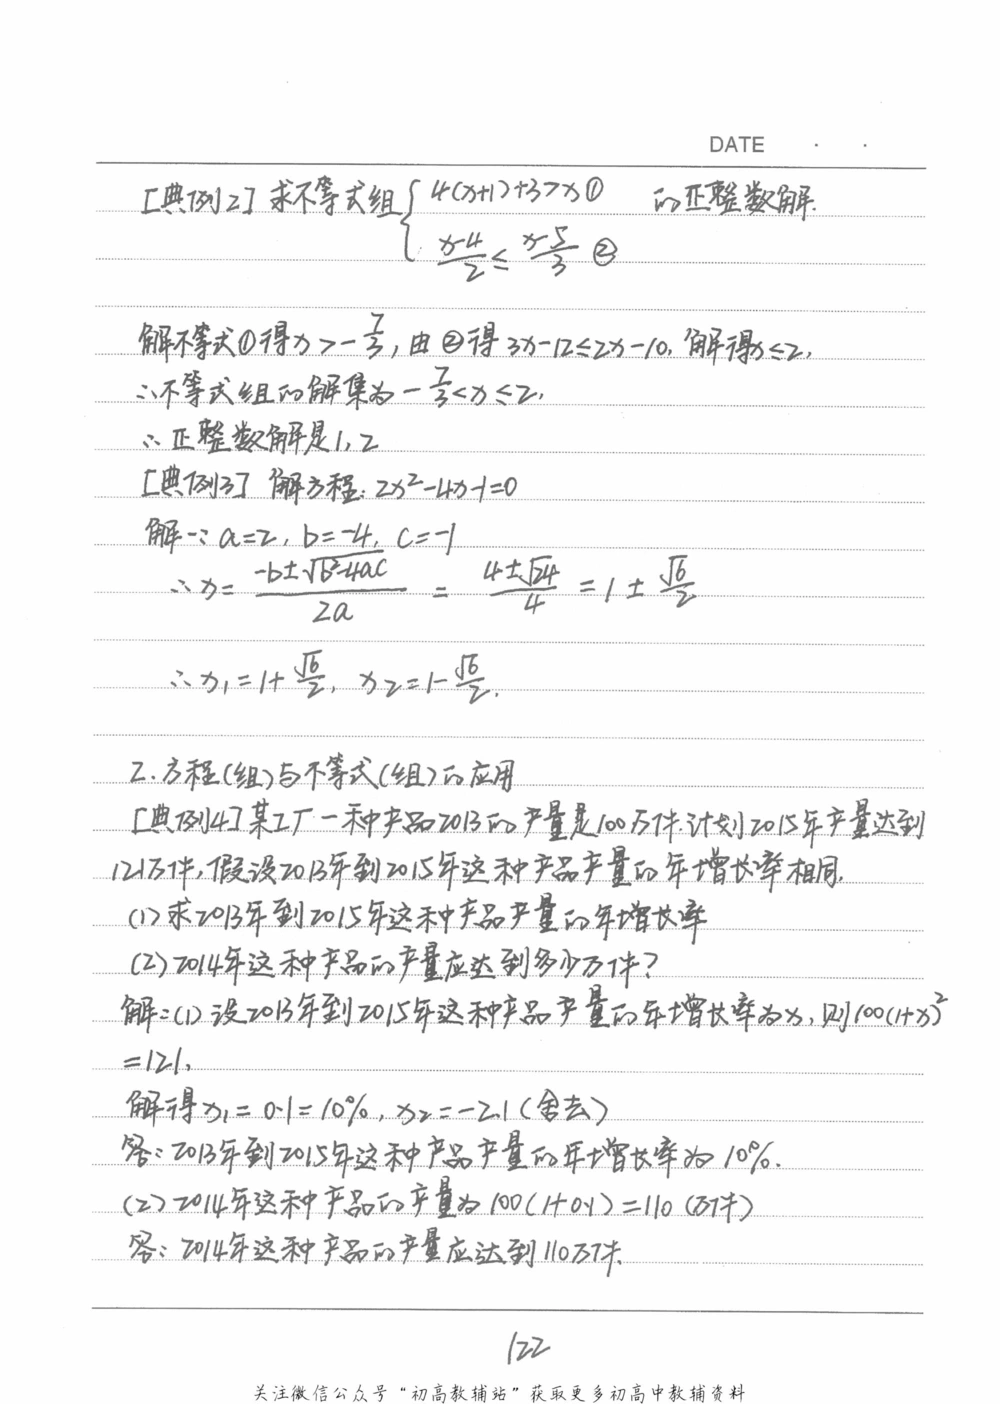 DATE · ·
[典例2] 求不等式组{4(x+1)+3>x① 的正整数解.
(x-4)/2≤(x-5)/3 ②
解不等式①得x>-7/3, 由②得3x-12≤2x-10, 解得x≤2,
∴不等式组的解集为-7/3<x≤2,
∴正整数解是1, 2
[典例3] 解方程: 2x²-4x-1=0
解∵a=2, b=-4, c=-1
∴x=(-b±√(b²-4ac))/2a = (4±√24)/4 =1±√6/2
∴x₁=1+√6/2, x₂=1-√6/2.
2.方程(组)与不等式(组)的应用
[典例4]某工厂一种产品2013的产量是100万件.计划2015年产量达到
121万件,假设2013年到2015年这种产品产量的年增长率相同.
(1)求2013年到2015年这种产品产量的年增长率
(2)2014年这种产品的产量应达到多少万件?
解:(1)设2013年到2015年这种产品产量的年增长率为x,则100(1+x)²
=121,
解得x₁=0.1=10%, x₂=-2.1(舍去)
答:2013年到2015年这种产品产量的年增长率为10%.
(2)2014年这种产品的产量为100(1+0.1)=110(万件)
答:2014年这种产品的产量应达到110万件.
122
关注微信公众号“初高教辅站”获取更多初高中教辅资料